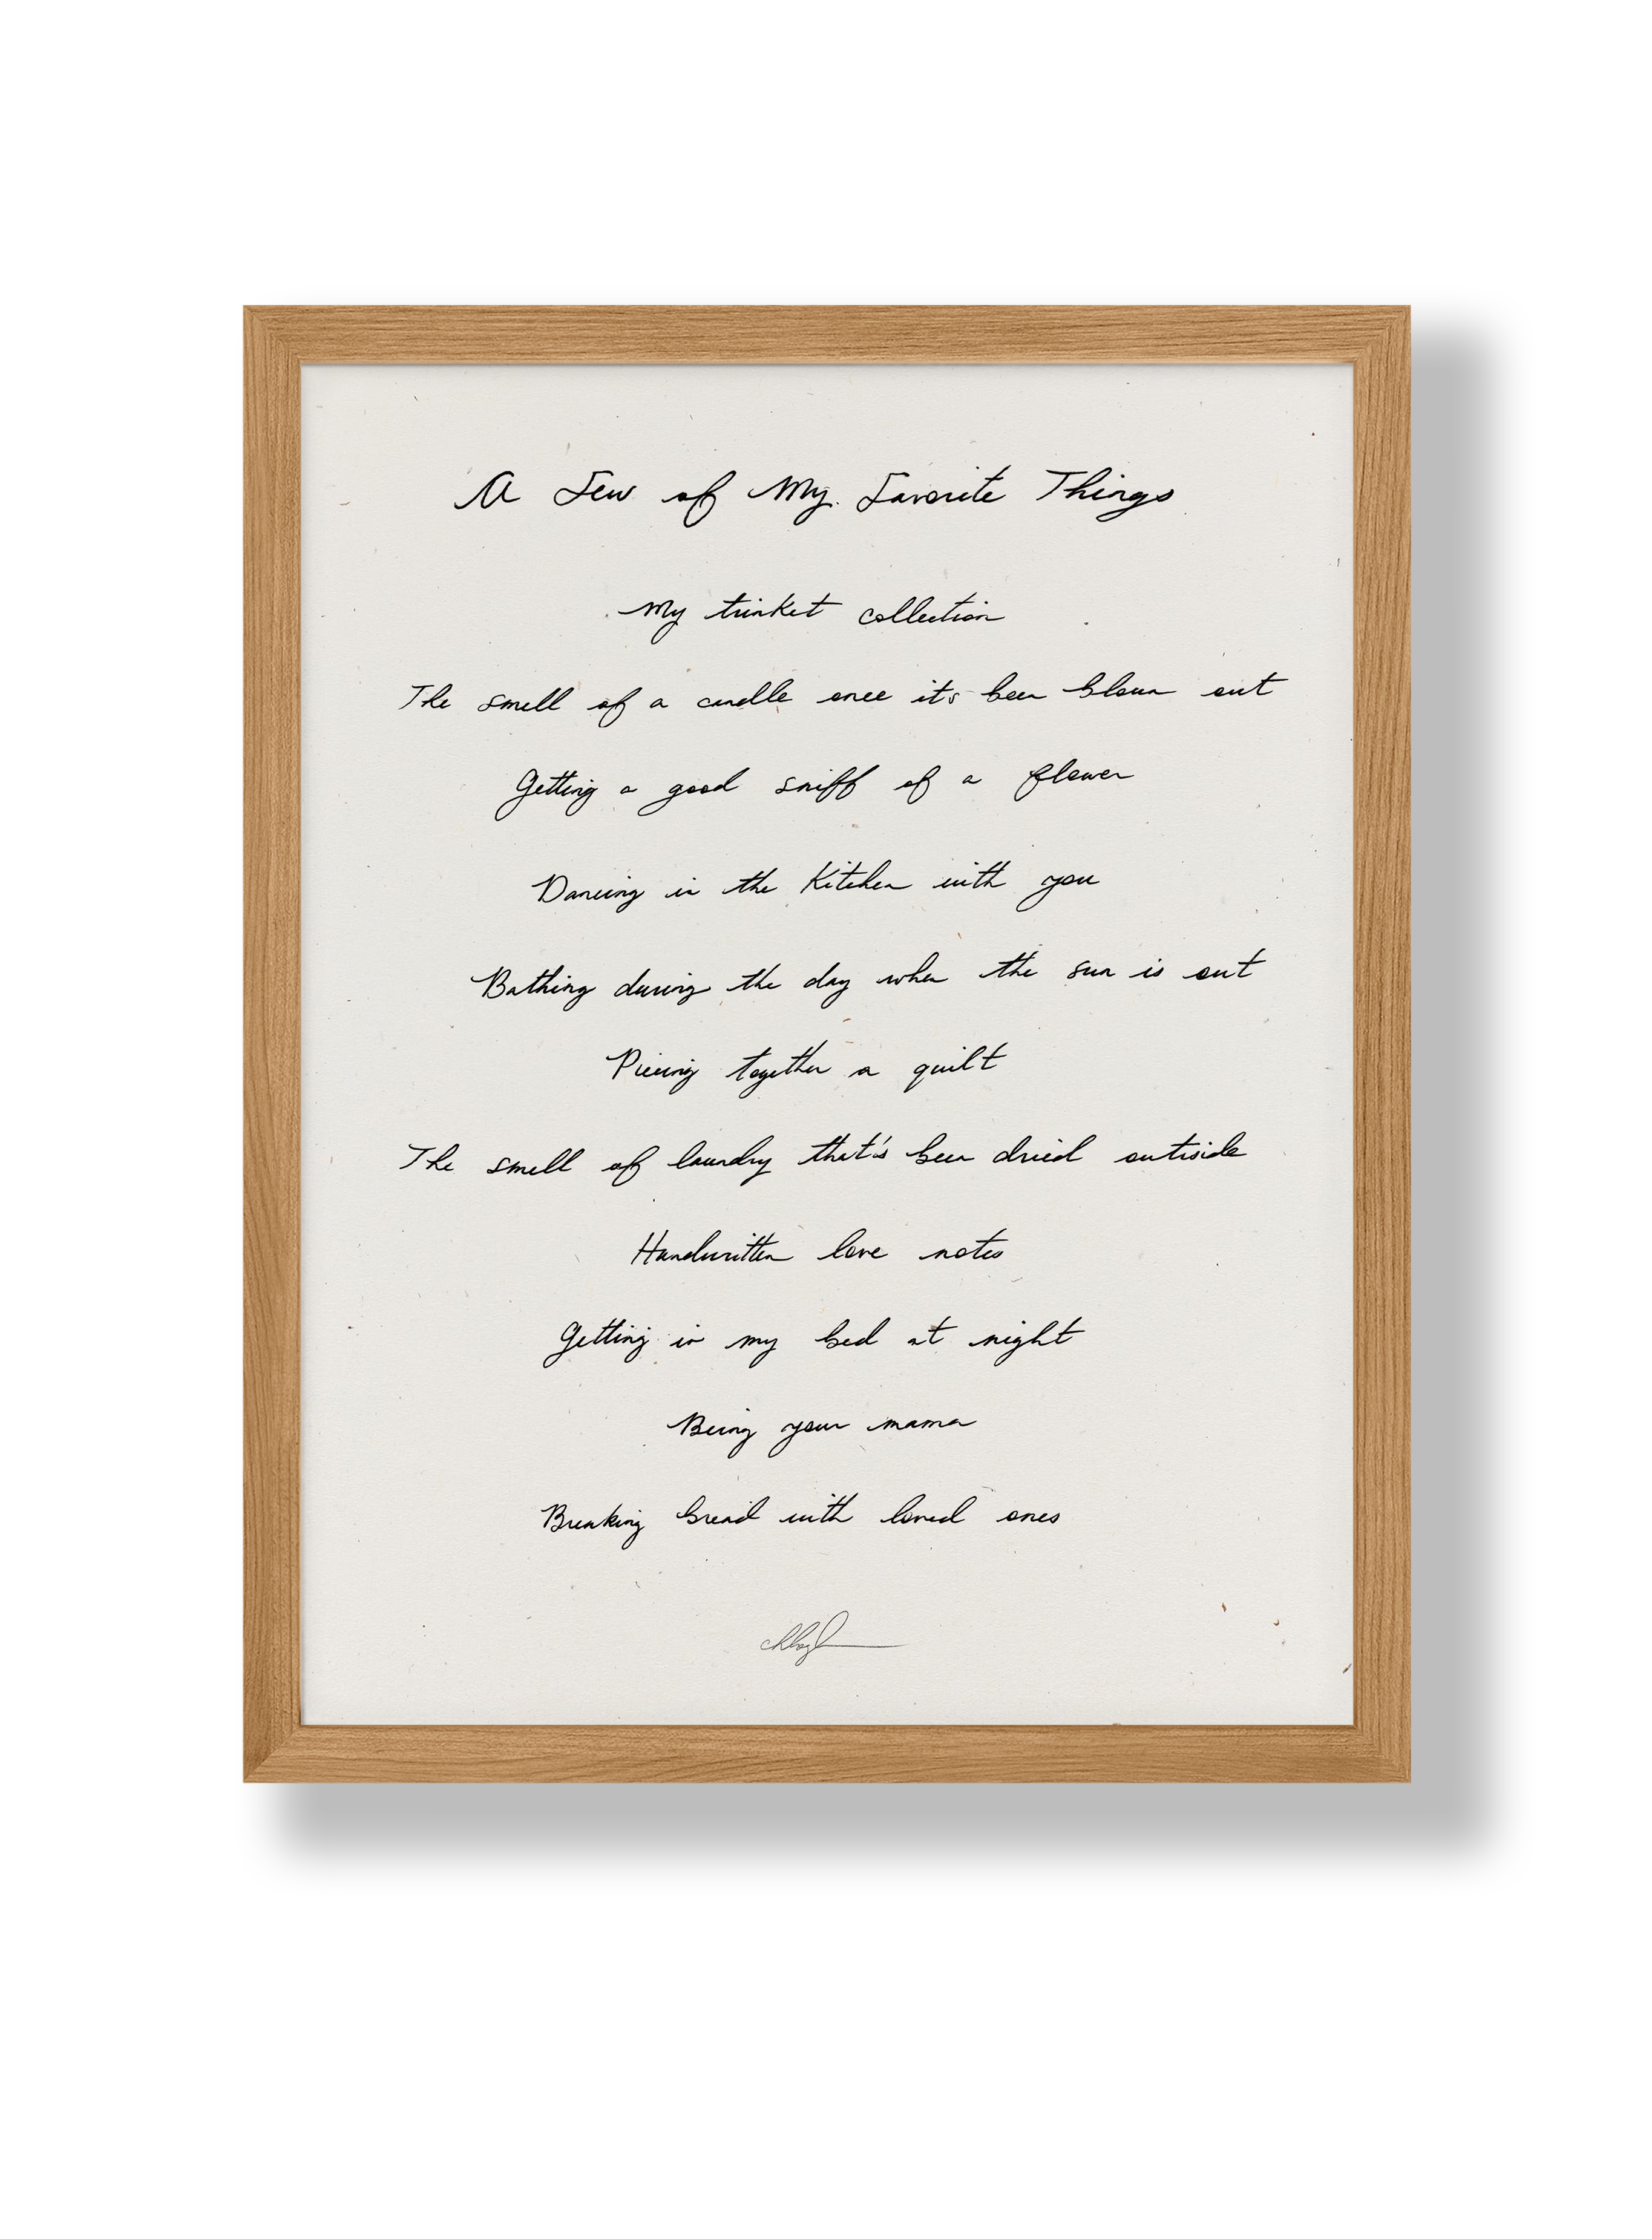 A Few of My Favorite Things
My trinket collection
The smell of a candle once it's been blown out
Getting a good sniff of a flower
Dancing in the Kitchen with you
Bathing during the day when the sun is out
Piecing together a quilt
The smell of laundry that's been dried outside
Handwritten love notes
Getting in my bed at night
Being your mama
Breaking bread with loved ones